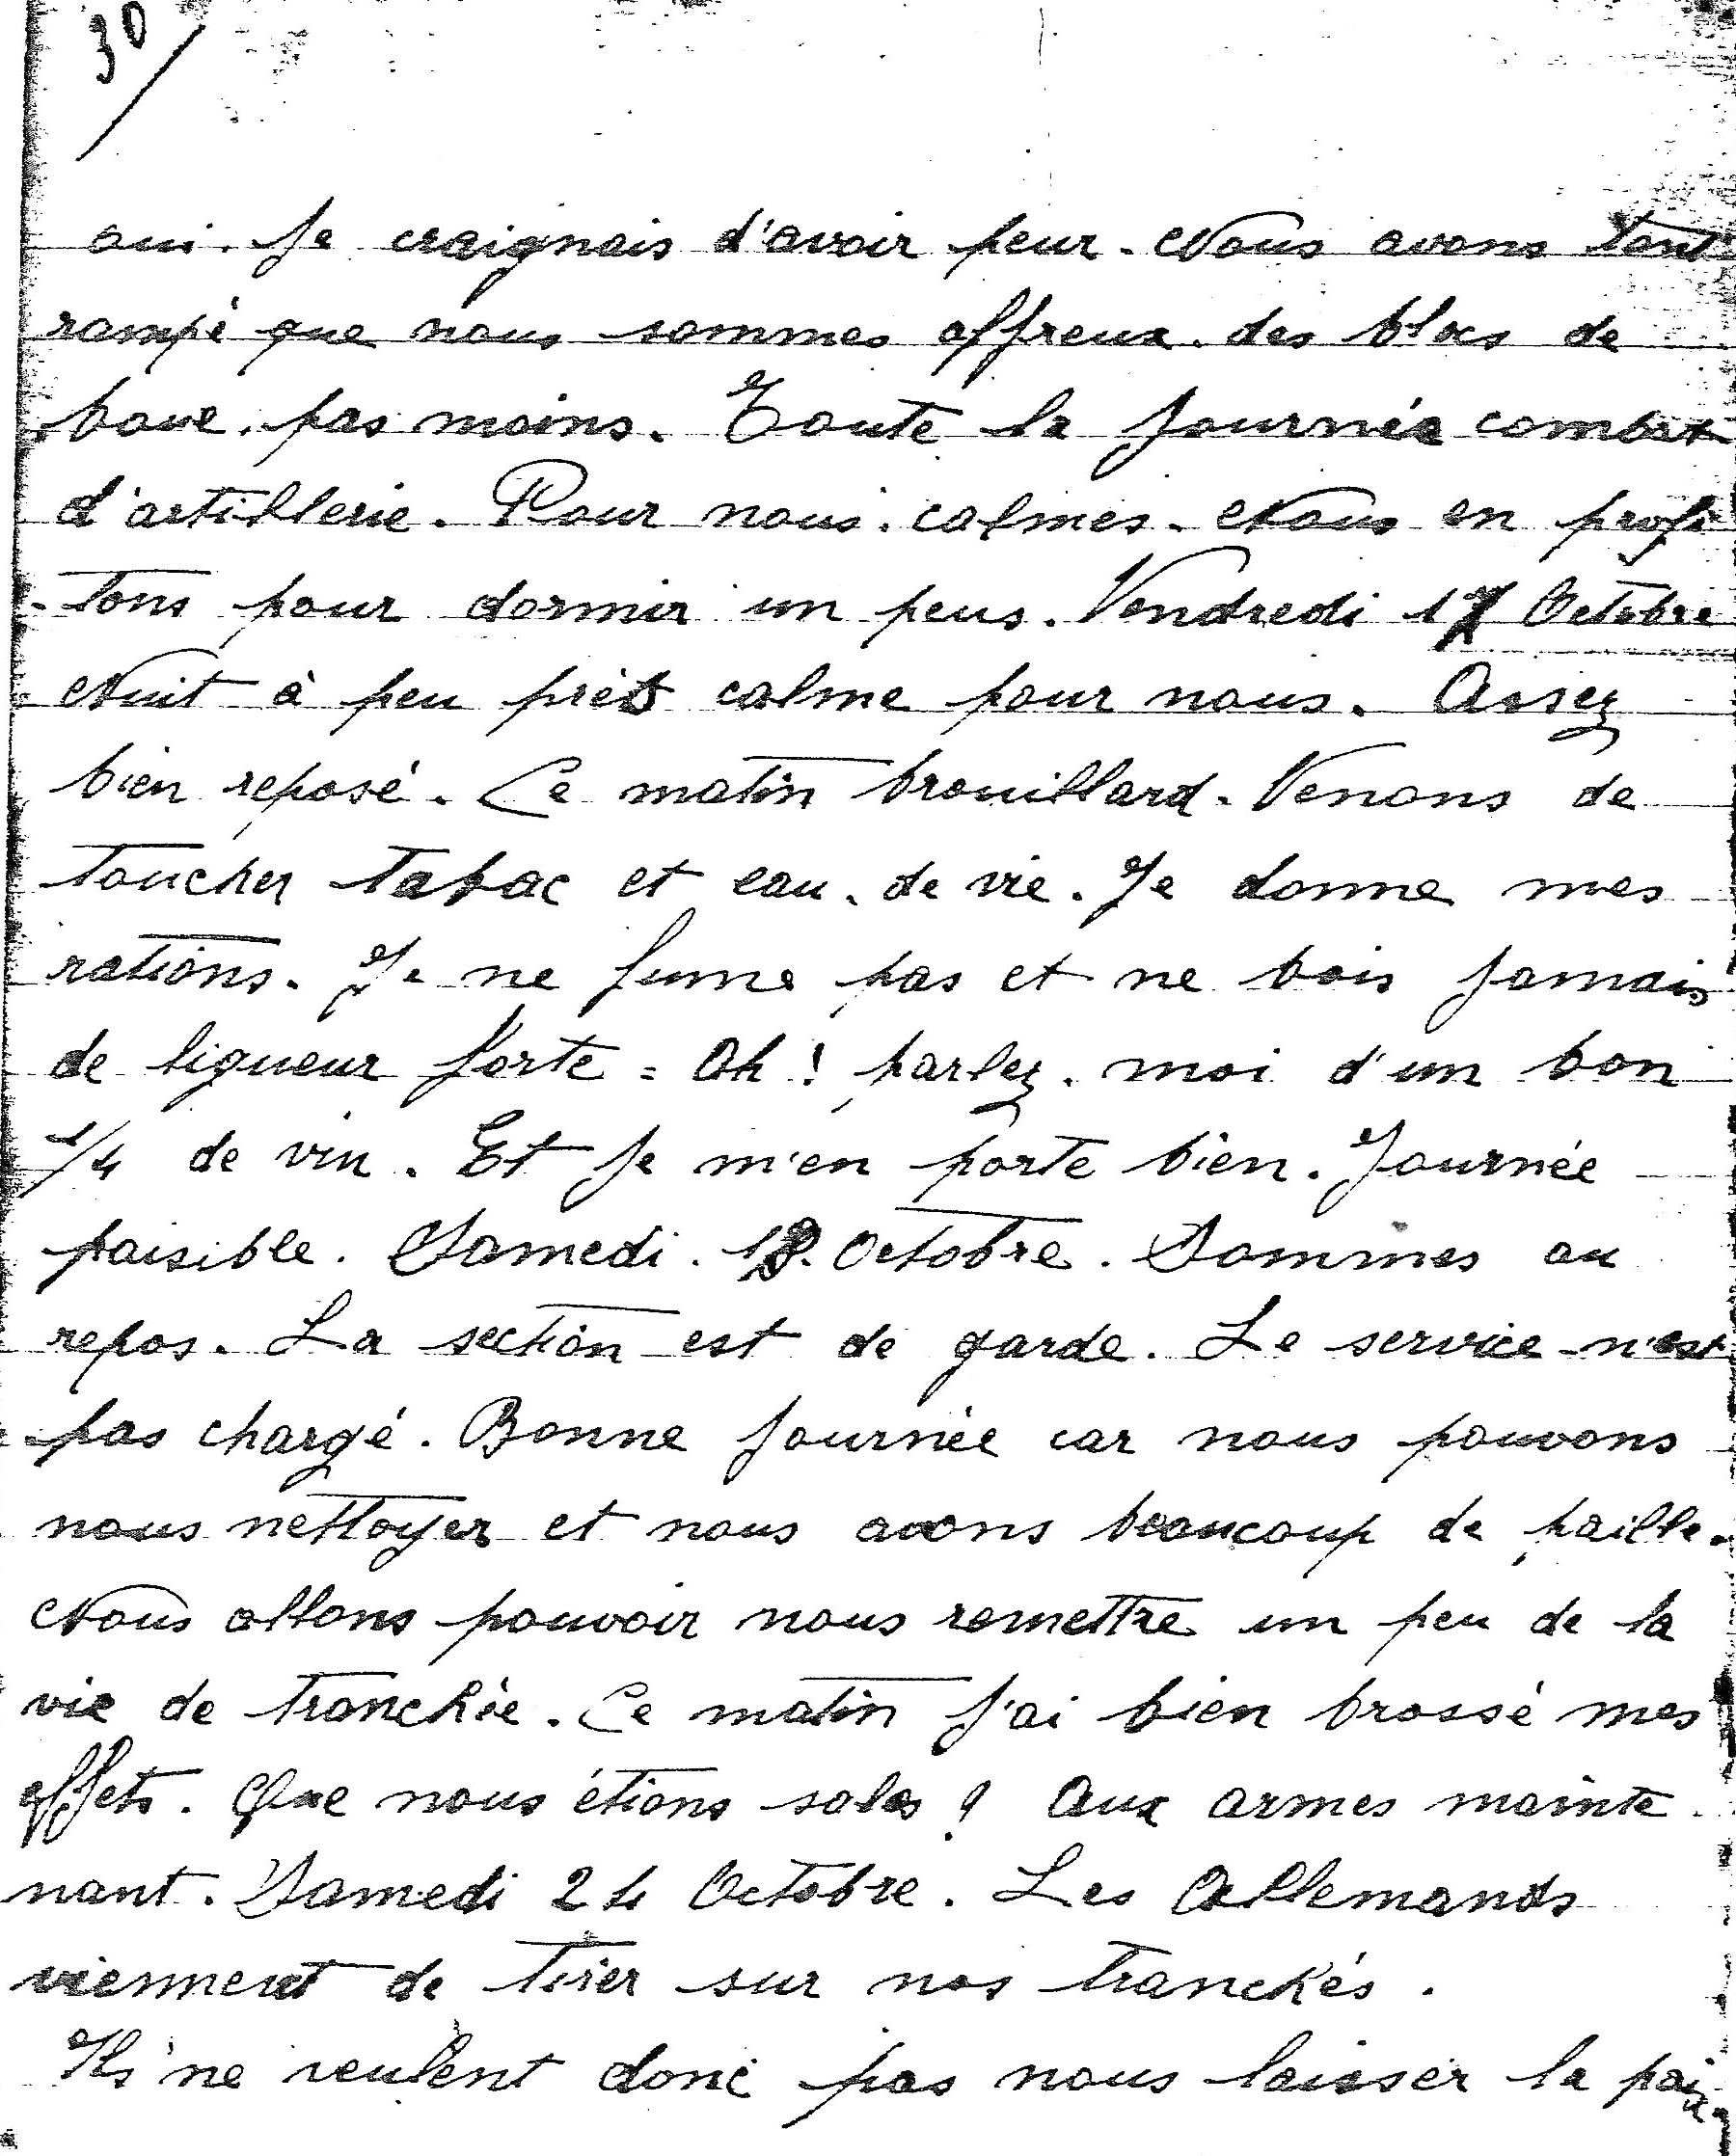 30
oui. Je craignais d'avoir peur. Nous avons tant
rampé que nous sommes affreux. des blocs de
boue. pas moins. Toute la journée combat
d'artillerie. Pour nous. calmes. Nous en profi
-tons pour dormir un peus. Vendredi 17 Octobre
Nuit à peu près calme pour nous. Assez
bien reposé. Ce matin brouillard. Venons de
toucher tabac et eau. de vie. Je donne mes
rations. Je ne fume pas et ne bois jamais
de liqueur forte = Oh ! parlez. moi d'un bon
1/4 de vin. Et je m'en porte bien. Journée
paisible. Samedi. 18. Octobre. Sommes au
repos. La section est de garde. Le service n'est
pas chargé. Bonne journée car nous pouvons
nous nettoyer et nous avons beaucoup de paille.
Nous allons pouvoir nous remettre un peu de la
vie de tranchée. Ce matin j'ai bien brossé mes
effets. Que nous étions sales ! Aux armes mainte
nant. Samedi 24 Octobre. Les Allemands
viennent de tirer sur nos tranchés.
Ils ne veulent donc pas nous laisser la paix.